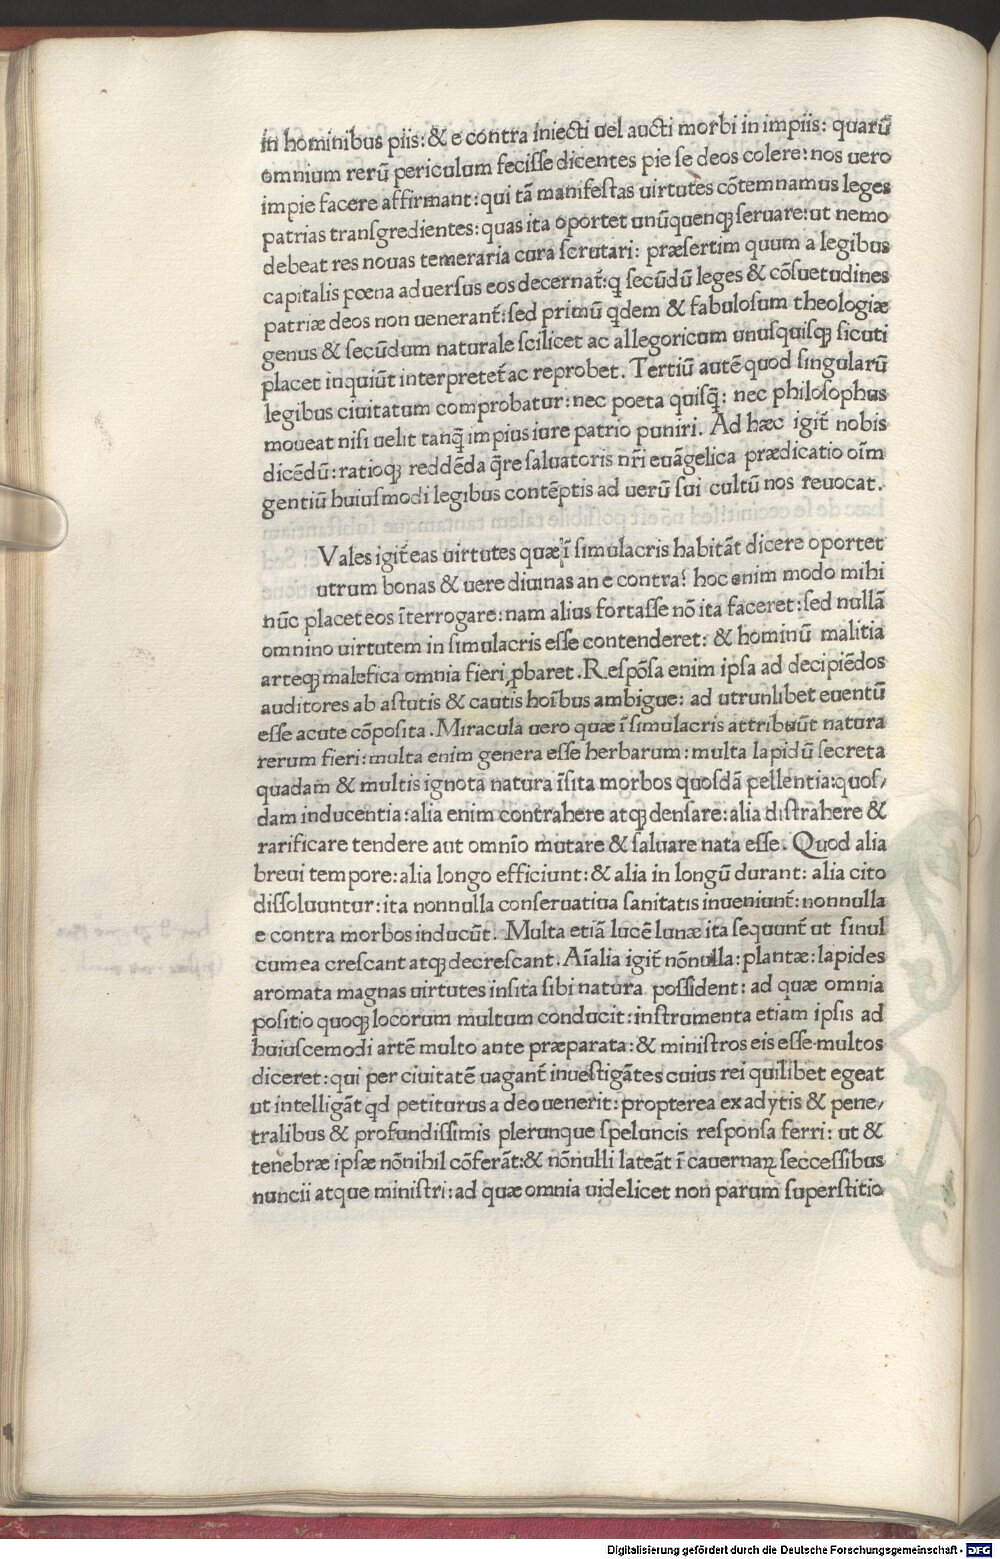 in hominibus piis: & e contra iniecti uel aucti morbi in impiis: quarū
omnium rerū periculum feciſſe dicentes pie ſe deos colere: nos uero
impie facere affirmant: qui tā manifeſtas uirtutes cōtemnamus leges
patrias tranſgredientes: quas ita oportet unūquenqꝫ ſeruare: ut nemo
debeat res nouas temeraria cura ſcrutari: præſertim quum a legibus
capitalis pœna aduerſus eos decernat̃: q ſecūdū leges & cōſuetudines
patriæ deos non uenerant̃: ſed primū qdem & fabuloſum theologiæ
genus & ſecūdum naturale ſcilicet ac allegoricum unuſquiſqꝫ ſicuti
placet inquiūt interpretet̃ ac reprobet. Tertiū autē quod ſingularū
legibus ciuitatum comprobatur: nec poeta quiſq̄: nec philoſophus
moueat niſi uelit tanq̄ impius iure patrio puniri. Ad hæc igit̃ nobis
dicēdū: ratioqꝫ reddēda q̄re ſaluatoris nr̄i euāgelica prædicatio oīm
gentiū huiuſmodi legibus contēptis ad uerū ſui cultū nos reuocat.
Vales igit̃ eas uirtutes quæ ī ſimulacris habitāt dicere oportet
utrum bonas & uere diuinas an e contra? hoc enim modo mihi
nūc placet eos īterrogare: nam alius fortaſſe nō ita faceret: ſed nullā
omnino uirtutem in ſimulacris eſſe contenderet: & hominū malitia
arteqꝫ malefica omnia fieri ꝓbaret. Reſpōſa enim ipſa ad decipiēdos
auditores ab aſtutis & cautis hoībus ambigue: ad utrunlibet euentū
eſſe acute cōpoſita. Miracula uero quæ ī ſimulacris attribuūt natura
rerum fieri: multa enim genera eſſe herbarum: multa lapidū ſecreta
quadam & multis ignota natura īſita morbos quoſdā pellentia: quoſ/
dam inducentia: alia enim contrahere atqꝫ denſare: alia diſtrahere &
rarificare tendere aut omnīo mutare & ſaluare nata eſſe. Quod alia
breui tempore: alia longo efficiunt: & alia in longū durant: alia cito
diſſoluuntur: ita nonnulla conſeruatiua ſanitatis inueniunt̃: nonnulla
e contra morbos inducūt. Multa etiā lucē lunæ ita ſequunt̃ ut ſinul
cum ea creſcant atqꝫ decreſcant. Aīalia igit̃ nōnulla: plantæ: lapides
aromata magnas uirtutes inſita ſibi natura poſſident: ad quæ omnia
poſitio quoqꝫ locorum multum conducit: inſtrumenta etiam ipſis ad
huiuſcemodi artē multo ante præparata: & miniſtros eis eſſe multos
diceret: qui per ciuitatē uagant̃ inueſtigātes cuius rei quilibet egeat
ut intelligāt qd petiturus a deo uenerit: propterea ex adytis & pene/
tralibus & profundiſſimis plerunque ſpeluncis reſponſa ferri: ut &
tenebræ ipſæ nōnihil cōferāt: & nōnulli lateāt ī cauernaꝝ ſecceſſibus
nuncii atque miniſtri: ad quæ omnia uidelicet non parum ſuperſtitio
Digitalisierung gefördert durch die Deutsche Forschungsgemeinschaft - DFG